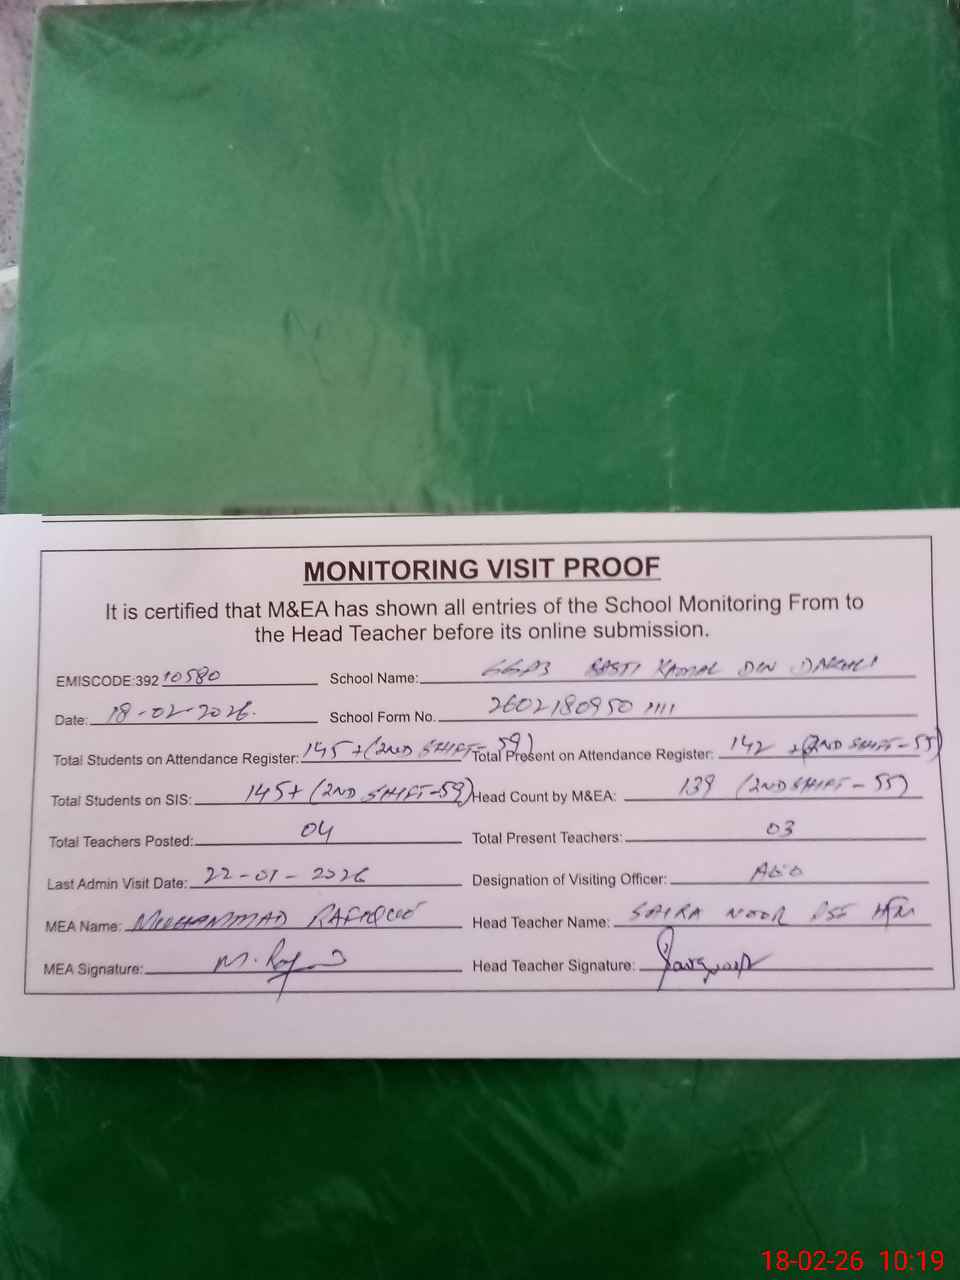 MONITORING VISIT PROOF
It is certified that M&EA has shown all entries of the School Monitoring From to
the Head Teacher before its online submission.
EMISCODE:392 10580 School Name: GGPS BASTI KAMAL DIN
Date: 18-02-2026. School Form No. 2602180950
Total Students on Attendance Register: 145+(2ND SHIFT-59) Total Present on Attendance Register: 142 +(2ND SHIFT-55)
Total Students on SIS: 145+ (2ND SHIFT-59) Head Count by M&EA: 139 (2ND SHIFT-55)
Total Teachers Posted: 04 Total Present Teachers: 03
Last Admin Visit Date: 22-01-2026 Designation of Visiting Officer: AEO
MEA Name: MUHAMMAD RAFIQUE Head Teacher Name: SAIRA NOOR
MEA Signature: Head Teacher Signature:
18-02-26 10:19